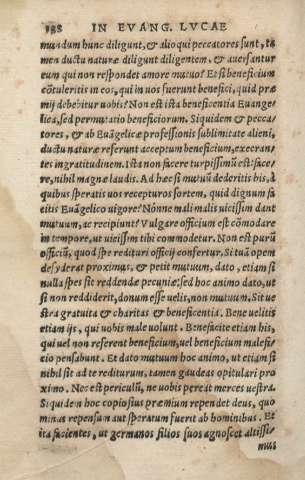 198 IN EVANG. LVCAE
mundum hunc diligunt, & alioqui peccatores sunt, ta
men ductu naturæ diligunt diligentem, & aversantur
eum qui non respondet amore mutuo? Et si beneficium
cõtuleritis in eos, qui in vos fuerunt benefici, quid præ
mij debebitur vobis? Non est ista beneficentia Evange
lica, sed permutatio beneficiorum. Siquidem & pecca
tores, & ab Euãgelicæ professionis sublimitate alieni,
ductu naturæ referunt acceptum beneficium, execran
tes ingratitudinem. Ista non facere turpissimũ est: face
re, nihil magnæ laudis. Ad hæc si mutuũ dederitis his, à
quibus speratis vos recepturos sortem, quid dignum fa
citis Euãgelico vigore? Nónne mali malis vicissim dant
mutuum, ac recipiunt? Vulgare officium est cõmodare
in tempore, ut vicissim tibi commodetur. Non est purũ
officiũ, quod spe redituri officij confertur. Si tuã opem
desyderat proximus, & petit mutuum, dato, etiam si
nulla spes sit reddendæ pecuniæ: sed hoc animo dato, ut
si non reddiderit, donum esse velis, non mutuum. Sit ve
stra gratuita & charitas & beneficentia. Bene velitis
etiam ijs, qui vobis male volunt. Benefacite etiam his,
qui vel non referent beneficium, vel beneficium malefi/
cio pensabunt. Et dato mutuum hoc animo, ut etiam si
nihil sit ad te rediturum, tamen gaudeas opitulari pro
ximo. Nec est periculũ, ne vobis pereat merces vestra.
Siquidem hoc copiosius præmium rependet deus, quo
minus repensum aut speratum fuerit ab hominibus. Et
ita facientes, ut germanos filios suos agnoscet altissi/
mus